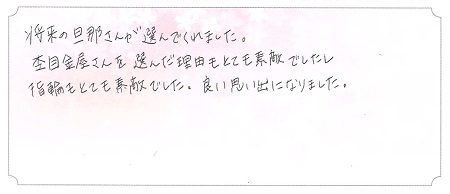 将来の旦那さんが選んでくれました。
杢目金屋さんを選んだ理由もとても素敵でしたし
指輪もとても素敵でした。良い思い出になりました。